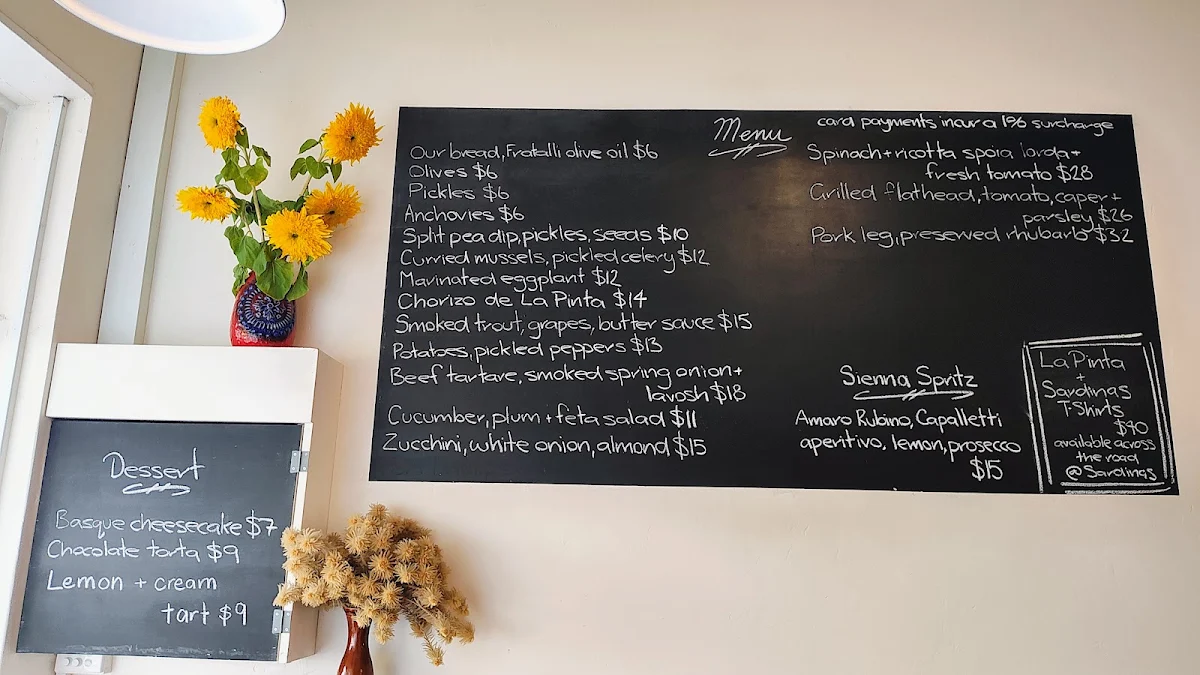 Menu
card payments incur a 1% surcharge
Our bread, Fratalli olive oil $6
Olives $6
Pickles $6
Anchovies $6
Split pea dip, pickles, seeds $10
Curried mussels, pickled celery $12
Marinated eggplant $12
Chorizo de La Pinta $14
Smoked trout, grapes, butter sauce $15
Potatoes, pickled peppers $13
Beef tartare, smoked spring onion +
lavosh $18
Cucumber, plum + feta salad $11
Zucchini, white onion, almond $15
Spinach + ricotta spoia lorda +
fresh tomato $28
Grilled flathead, tomato, caper +
parsley $26
Pork leg, preserved rhubarb $32
Sienna Spritz
Amaro Rubino, Capalletti
aperitivo, lemon, prosecco
$15
La Pinta
+
Sardinas
T-Shirts
$40
available across
the road
@Sardinas
Dessert
Basque cheesecake $7
Chocolate torta $9
Lemon + cream
tart $9